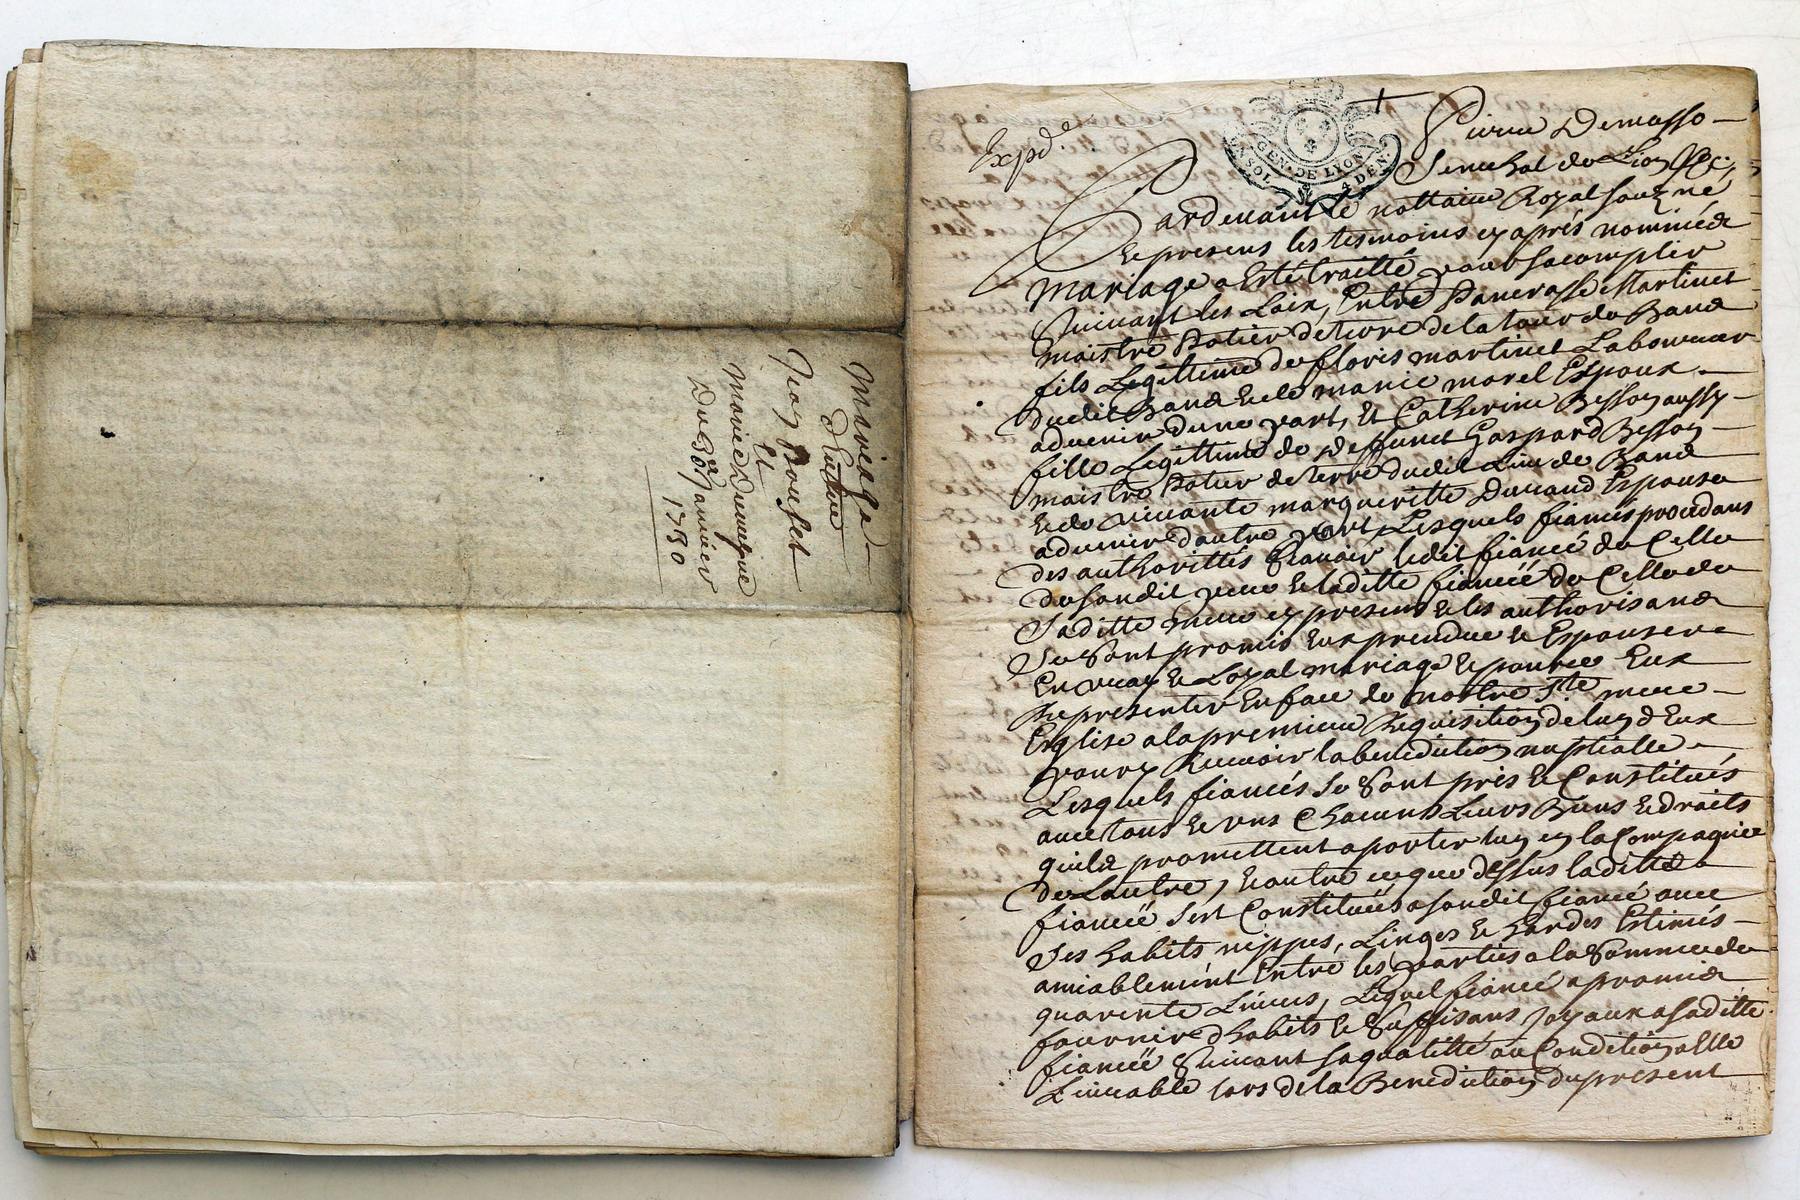 Mariage
d'Entre
Jean Bouset
Et
Marie
Du 30e Janvier
1730
Expd.e
GEN. DE LYON
UN SOL 4 DEN.
Pierre Demasso
Senechal de Lion &c;
Pardevant le nottaire Royal souzne
Et presens les tesmoins cy après nommés
mariage a Esté traitté pour s'acomplir
Suivant les Loix, Entre Pancrasse Martinet
maistre Potier de terre de la tour du Band
fils Legittime de floris martinet Laboureur
dudit Band et de marie morel Espoux
advenir d'une part, Et Catherine Besson aussy
fille Legittime de deffunct Gaspard Besson
maistre Potier de terre dudit Lieu de Band
et de vivante margueritte Durand Espouse
advenir d'autre part, Lesquels fiancés procedans
des authorittés Scavoir ledit fiancé de Celle
de sondit pere Et laditte fiancée de Celle de
saditte mere cy presens & les authorisans
Se Sont promis Eux prendre & Espouser
En vray & Loyal mariage & pour ce Eux
Representer En face de nostre Ste. mere
Esglise a la premiere Requisition de l'un d'Eux
pour y Recevoir la benediction nuptialle
Lesquels fiancés Se Sont pris & Constitués
avec tous & uns Chacuns Leurs Biens & droits
quils promettent aporter lun en la Compagnie
de Lautre, & outre ce que dessus laditte
fiancée s'est Constituée a sondit fiancé avec
Ses habits nippes, Linges & hardes Estimés
amiablement Entre les parties a la Somme de
quarente Livres, Lequel fiancé a promis
fournir d'habits & Suffisans Joyaux a saditte
fiancée Suivant sa qualitté ou Condition a Elle
Livrable lors de la Benediction du present